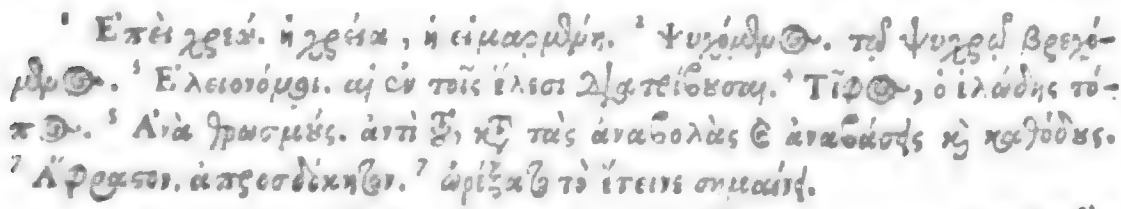 ¹ Ἐπεὶ χρεών. ἡ χρεία, ἡ εἱμαρμένη. ² Ψυχόμενος. τῷ ψυχρῷ βρεχό-
μενος. ³ Ἑλειονόμοι. αἱ ἐν τοῖς ἕλεσι διατρίβουσαι. ⁴ Τῖφος, ὁ ἑλώδης τό-
πος. ⁵ Ἀνὰ θρωσμούς. ἀντὶ τοῦ, κατὰ τὰς ἀναβολὰς καὶ ἀναβάσεις καὶ καθόδους.
⁷ Ἄφραστον. ἀπροσδόκητον. ⁷ ὠρέξατο τὸ ἔτεινε σημαίνει.